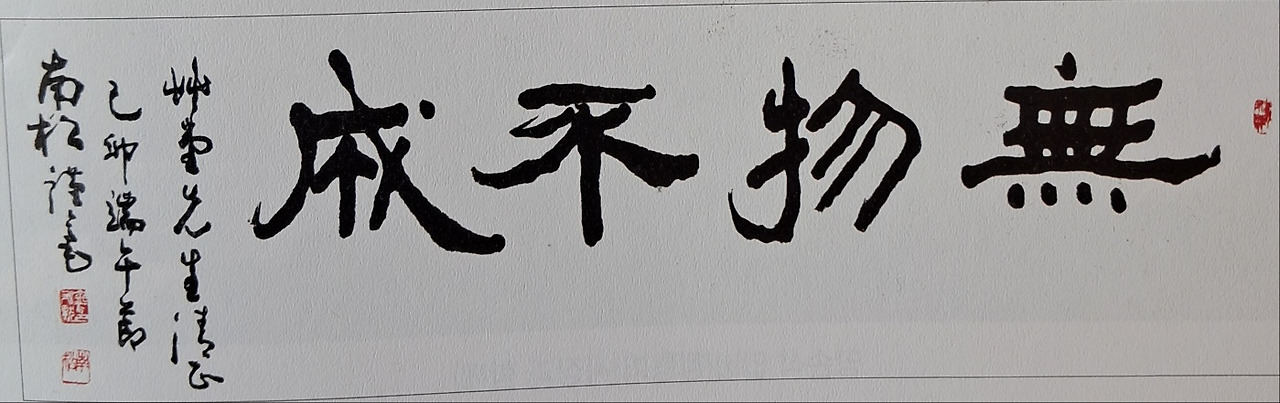 無物不成
艸堂先生清正
己卯端午節
南松謹書